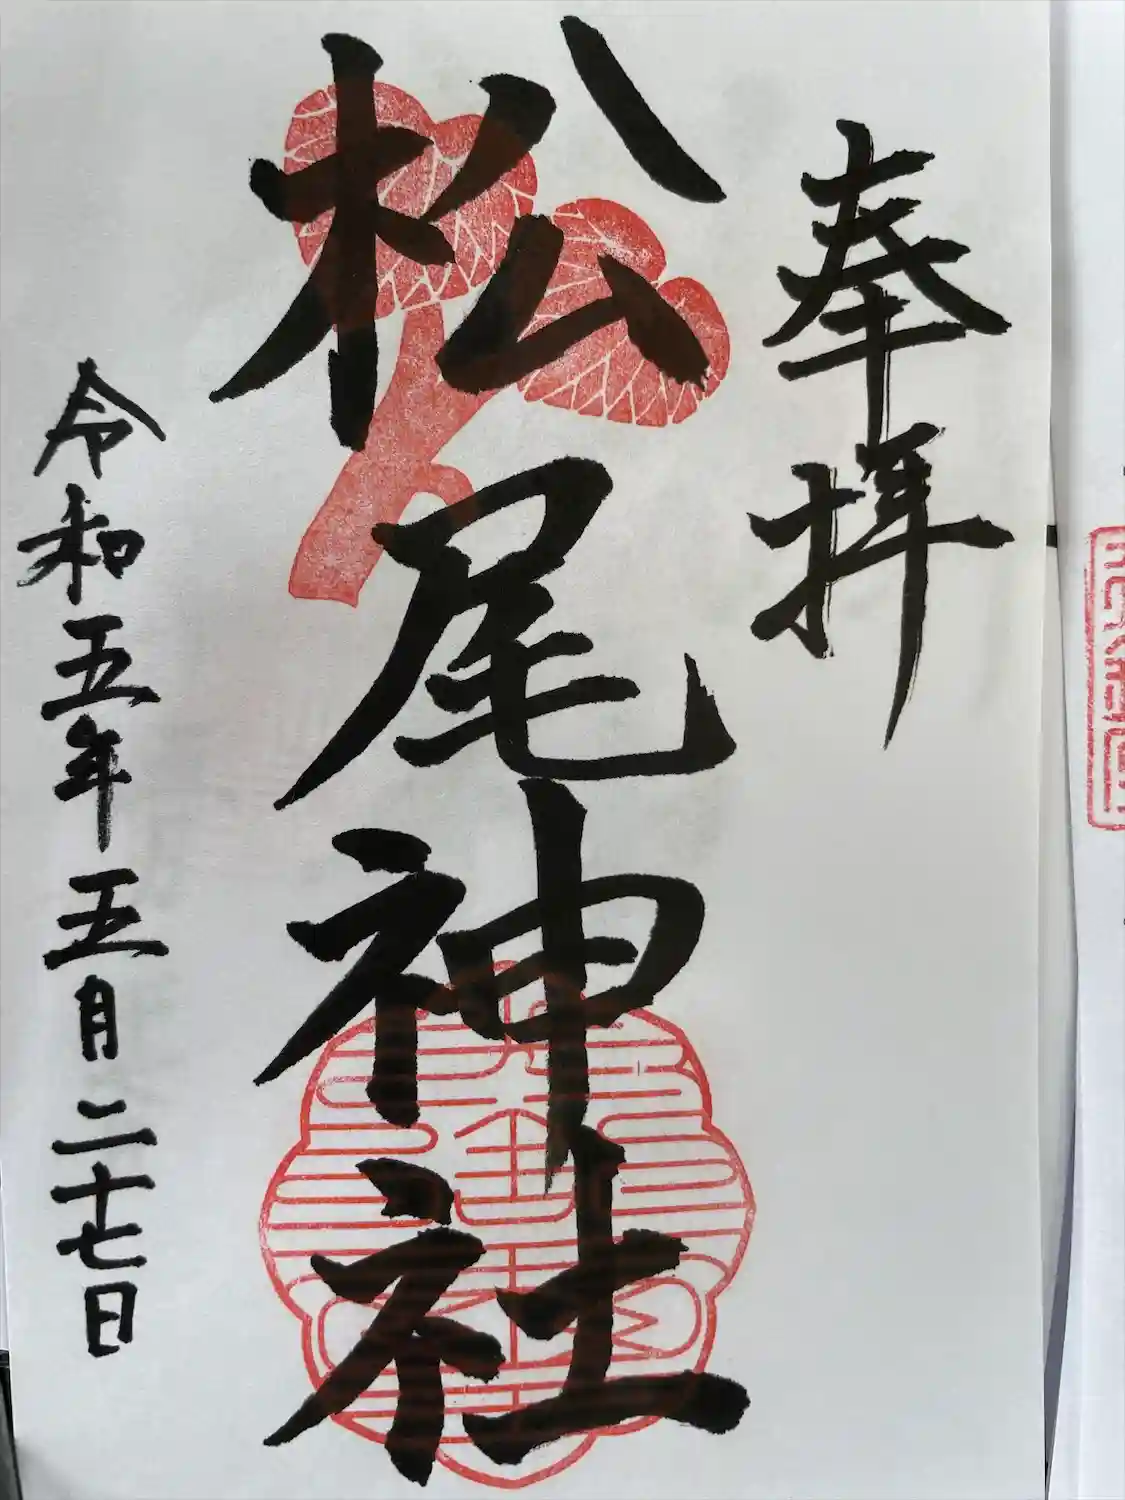 奉拝
松尾神社
令和五年五月二十七日